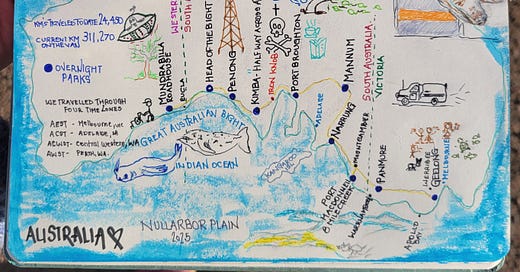 KMS TRAVELLED TO DATE 24,450
CURRENT KM 311,270
ON THE VAN
OVERNIGHT
PARKS
WE TRAVELLED THROUGH
FOUR TIME ZONES
AEST - MELBOURNE, VIC
ACST - ADELAIDE, SA
ACWST - CENTRAL WESTERN, WA
AWST - PERTH, WA
WESTERN
SOUTH A
MUNDRABILLA
ROADHOUSE
HEAD OF THE BIGHT
PENONG
KIMBA - HALF WAY ACROSS A
IRON KNOB
PORT BROUGHTON
ADELAIDE
MANNUM
SOUTH AUSTRALIA
VICTORIA
GREAT AUSTRALIAN BIGHT
INDIAN OCEAN
KANGAROO
NARRUNG
MOUNT GAMBIER
PORT
MACDONNELL
8 MILE CREEK
WARRNAMBOOL
PANMURE
WERRIBEE
GEELONG
MELBOURNE
APOLLO
BAY
NULLARBOR PLAIN
2025
AUSTRALIA